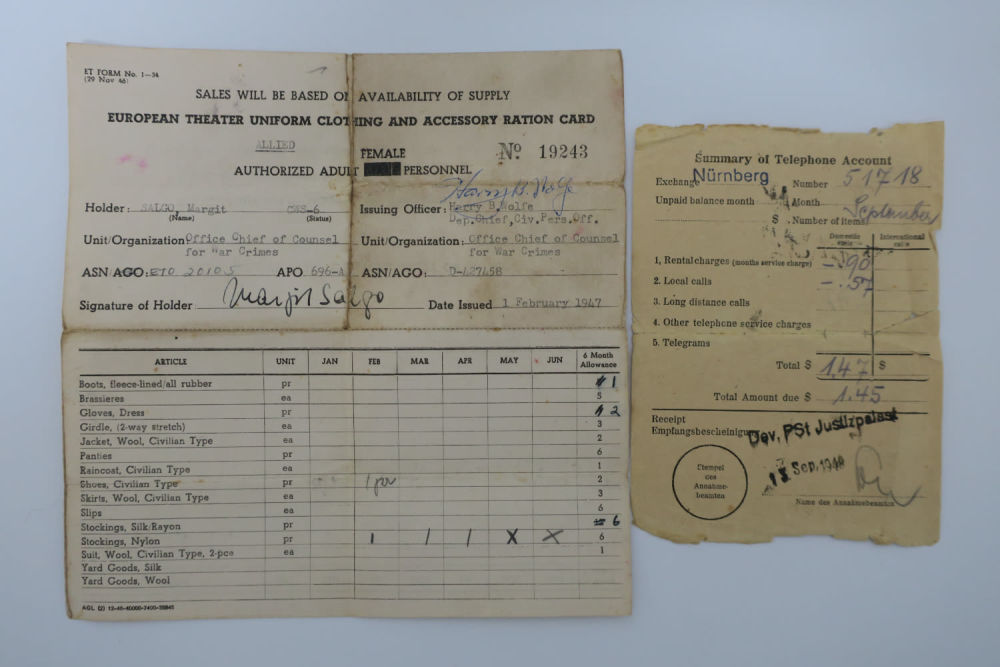 ET FORM No. 1—34
(29 Nov 46)
SALES WILL BE BASED ON AVAILABILITY OF SUPPLY
EUROPEAN THEATER UNIFORM CLOTHING AND ACCESSORY RATION CARD
ALLIED
FEMALE
No 19243
AUTHORIZED ADULT PERSONNEL
Harry B. Wolfe
Holder: SALGO, Margit CWS-6
(Name) (Status)
Issuing Officer: Harry B.Wolfe
Dep.Chief,Civ.Pers.Off.
Unit/Organization Office Chief of Counsel
for War Crimes
Unit/Organization: Office Chief of Counsel
for War Crimes
ASN AGO: ETO 20105 APO 696-A
ASN/AGO: D-427458
Signature of Holder Margit Salgo
Date Issued 1 February 1947
ARTICLE UNIT JAN FEB MAR APR MAY JUN 6 Month Allowance
Boots, fleece-lined/all rubber pr 1
Brassieres ea 5
Gloves, Dress pr 2
Girdle, (2-way stretch) ea 3
Jacket, Wool, Civilian Type ea 2
Panties ea 6
Raincoat, Civilian Type ea 1
Shoes, Civilian Type pr 1 pr 2
Skirts, Wool, Civilian Type ea 3
Slips ea 6
Stockings, Silk/Rayon pr 6
Stockings, Nylon pr 1 / / X X 6
Suit, Wool, Civilian Type, 2-pce ea 1
Yard Goods, Silk
Yard Goods, Wool
Summary of Telephone Account
Exchange Nürnberg Number 51718
Unpaid balance month Month September
$ Number of items
Domestic calls International calls
1. Rental charges (months service charge) -.90
2. Local calls -.57
3. Long distance calls
4. Other telephone service charges
5. Telegrams
Total $ 1.47 $
Total Amount due $ 1.45
Receipt
Empfangsbescheinigung
Dev. PSt Justizpalast
13 Sep. 1948
Stempel
des
Annahme-
beamten
Name des Annahmebeamten